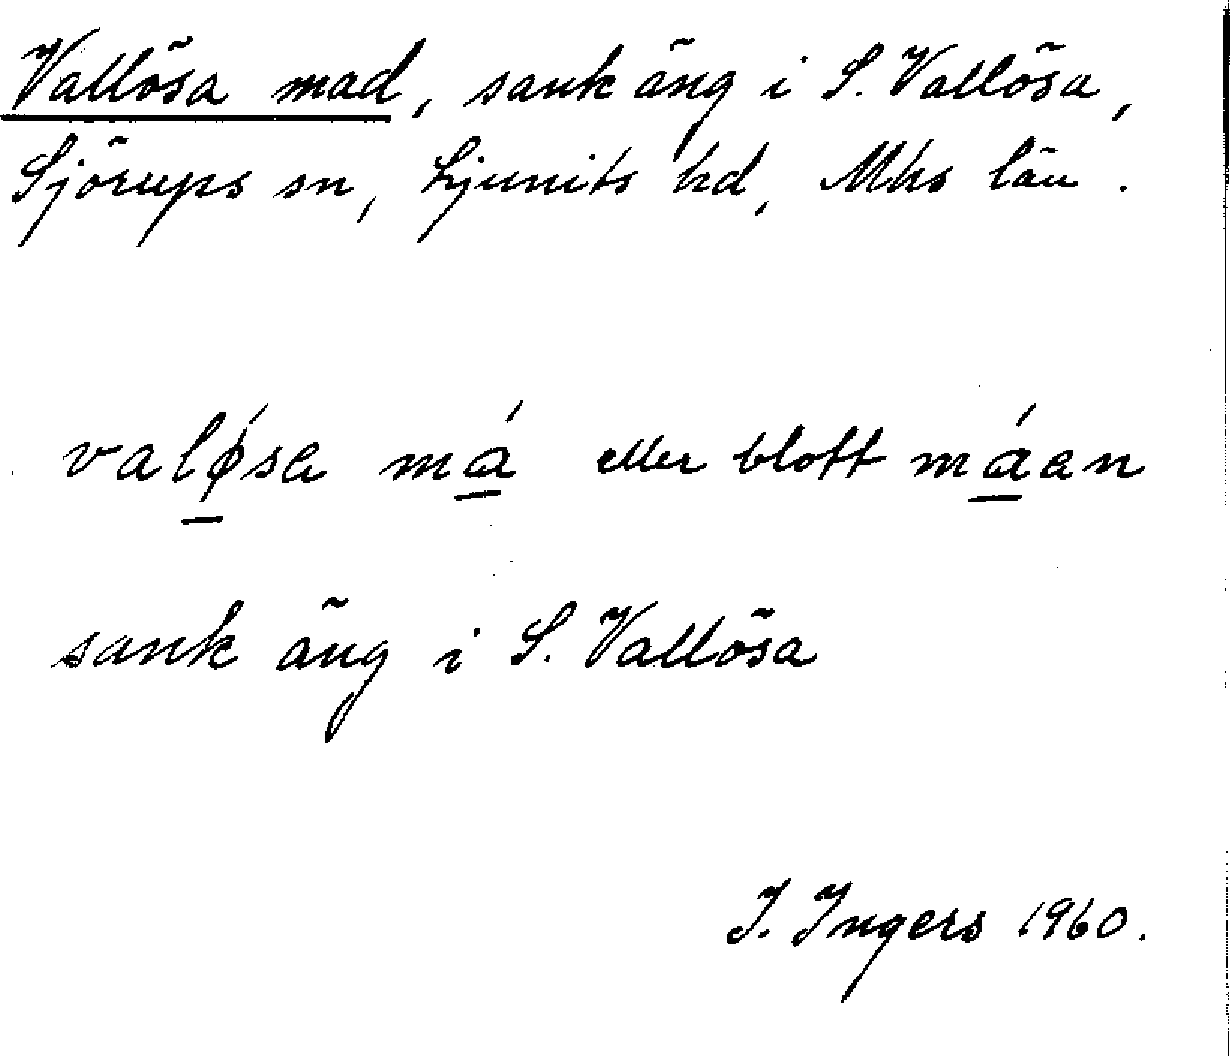 Vallösa mad, sank äng i S. Vallösa,
Sjörups sn, Ljunits hd, Mhs län.
valǿsa má eller blott máan
sank äng i S. Vallösa
I. Ingers 1960.